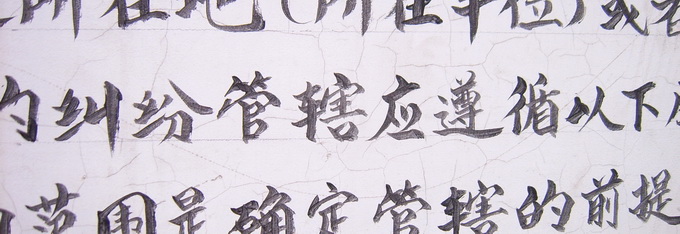 所在地(所在单位)或者
的纠纷管辖应遵循以下原
范围是确定管辖的前提